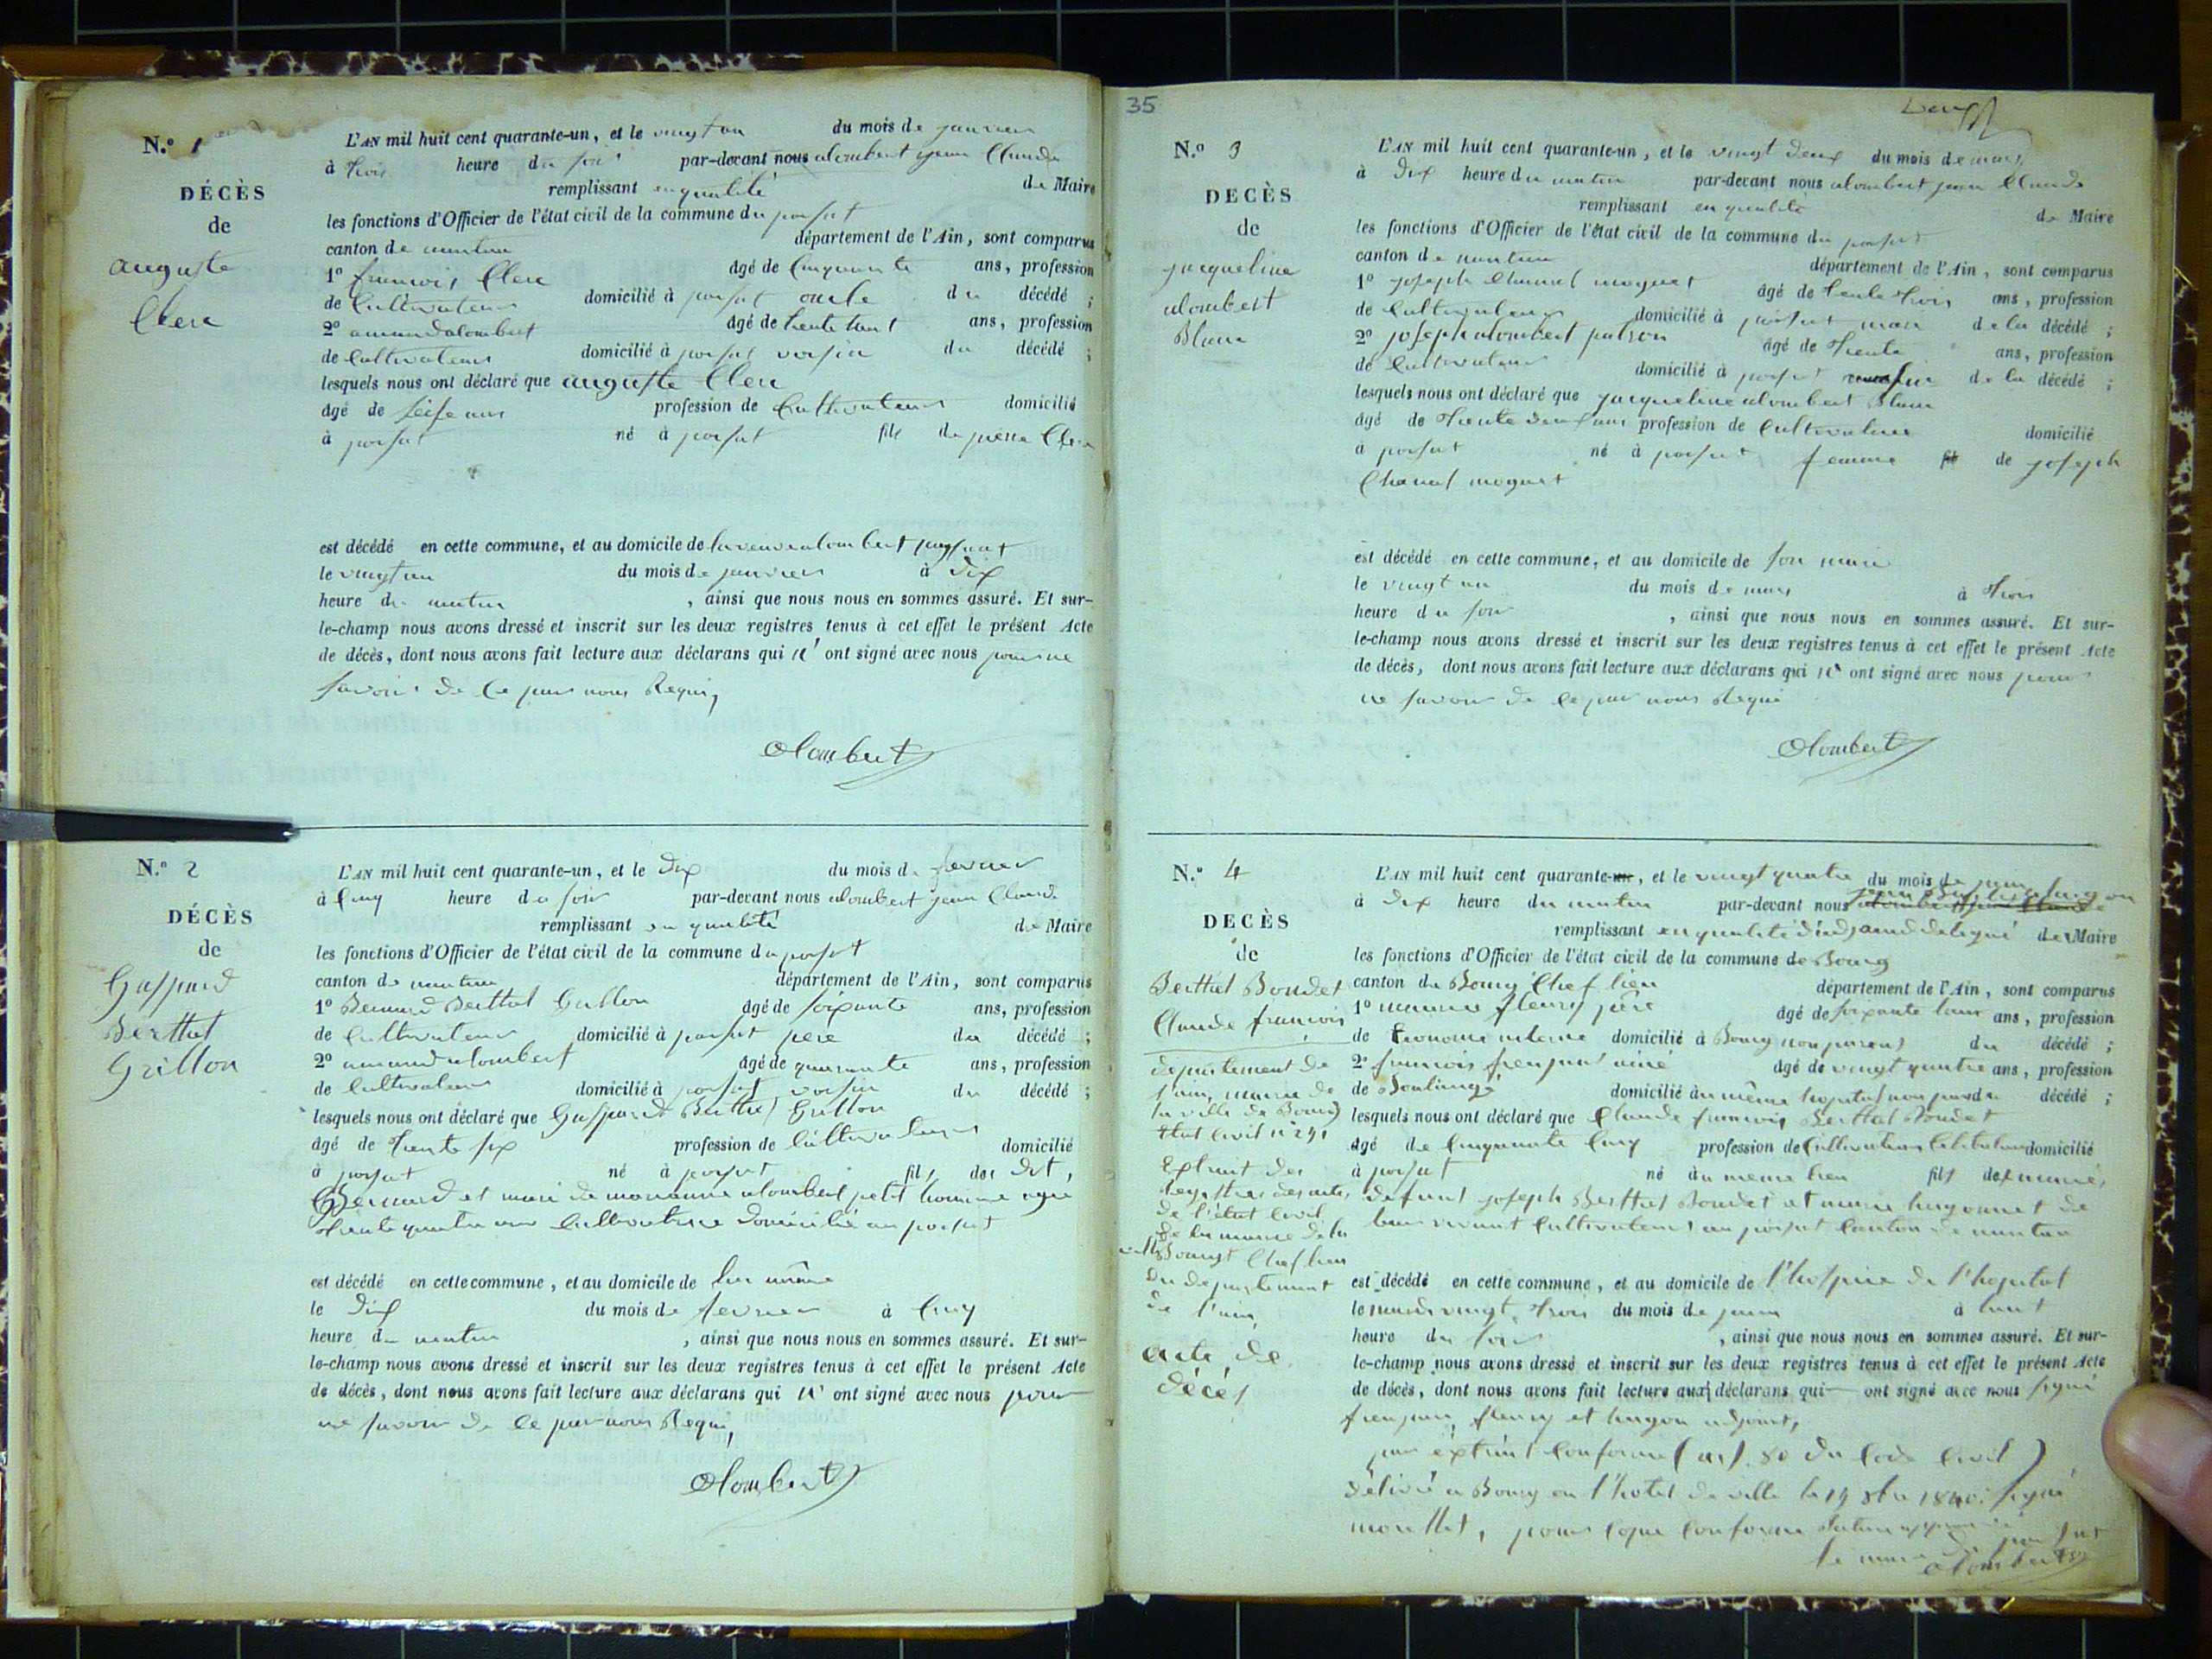 N.o 1
DÉCÈS
de
auguste
Clerc
L'AN mil huit cent quarante-un, et le vingt un du mois de janvier
à trois heure du soir par-devant nous alombert jean Claude
remplissant en qualité de Maire
les fonctions d'Officier de l'état civil de la commune du poisat
canton de nantua département de l'Ain, sont comparus
1o francois Clerc âgé de Cinquante ans, profession
de Cultivateur domicilié à poisat oncle du décédé ;
2o amand alombert âgé de trente huit ans, profession
de Cultivateur domicilié à poisat voisin du décédé ;
lesquels nous ont déclaré que auguste Clerc
âgé de seise ans profession de Cultivateur domicilié
à poisat né à poisat fils de pierre Clerc
est décédé en cette commune, et au domicile de la veuve alombert
le vingt un du mois de janvier à dix
heure du matin , ainsi que nous nous en sommes assuré. Et sur-
le-champ nous avons dressé et inscrit sur les deux registres tenus à cet effet le présent Acte
de décès, dont nous avons fait lecture aux déclarans qui n' ont signé avec nous pour ne
savoir de ce par nous Requis,
alombert
N.o 2
DÉCÈS
de
Gaspard
Berthet
Grillon
L'AN mil huit cent quarante-un, et le dix du mois de fevrier
à Cinq heure du soir par-devant nous alombert jean Claude
remplissant en qualité de Maire
les fonctions d'Officier de l'état civil de la commune du poisat
canton de nantua département de l'Ain, sont comparus
1o Bernard Berthet Grillon âgé de soixante ans, profession
de Cultivateur domicilié à poisat pere du décédé ;
2o amand alombert âgé de quarante ans, profession
de Cultivateur domicilié à poisat voisin du décédé ;
lesquels nous ont déclaré que Gaspard Berthet Grillon
âgé de trente six profession de Cultivateur domicilié
à poisat né à poisat fils du dit,
Bernard et mari de marianne alombert petit homme agée
trente quatre ans Cultivatrice domiciliée au poisat
est décédé en cette commune, et au domicile de lui même
le dix du mois de fevrier à Cinq
heure du matin , ainsi que nous nous en sommes assuré. Et sur-
le-champ nous avons dressé et inscrit sur les deux registres tenus à cet effet le présent Acte
de décès, dont nous avons fait lecture aux déclarans qui n' ont signé avec nous pour
ne savoir de ce par nous Requi,
alombert
35
N.o 3
DECÈS
de
jacqueline
alombert
Blanc
L'AN mil huit cent quarante-un, et le vingt deux du mois de mars
à dix heure du matin par-devant nous alombert jean Claude
remplissant en qualité de Maire
les fonctions d'Officier de l'état civil de la commune du poisat
canton de nantua département de l'Ain, sont comparus
1o joseph Chanal moguet âgé de trente trois ans, profession
de Cultivateur domicilié à poisat mari de la décédé ;
2o joseph alombert patron âgé de trente ans, profession
de Cultivateur domicilié à poisat de la décédé ;
lesquels nous ont déclaré que jacqueline alombert Blanc
âgé de trente deux ans profession de Cultivatrice domicilié
à poisat né à poisat femme de joseph
Chanal moguet
est décédé en cette commune, et au domicile de son mari
le vingt un du mois de mars à trois
heure du soir , ainsi que nous nous en sommes assuré. Et sur-
le-champ nous avons dressé et inscrit sur les deux registres tenus à cet effet le présent Acte
de décès, dont nous avons fait lecture aux déclarans qui n' ont signé avec nous pour
ne savoir de ce par nous Requi
alombert
N.o 4
DECÈS
de
Berthet Bondet
Claude francois
departement de
l'ain, mairie de
la ville de Bourg
Etat Civil
Extrait des
Registres des actes
de l'état Civil
de la mairie de la
ville Bourg Chef lieu
du departement
de l'ain,
acte de
décés
L'AN mil huit cent quarante-un, et le vingt quatre du mois de juin
à dix heure du matin par-devant nous
remplissant en qualité d'adjoint delegué de Maire
les fonctions d'Officier de l'état civil de la commune de Bourg
canton de Bourg Chef lieu département de l'Ain, sont comparus
1o fleury père âgé de soixante ans, profession
de Econome interne domicilié à Bourg non parent du décédé ;
2o francois âgé de vingt quatre ans, profession
de Boulanger domicilié au même hopital non par du décédé ;
lesquels nous ont déclaré que Claude francois Berthet Bondet
âgé de Cinquante Cinq profession de Cultivateur Celibataire domicilié
à poisat né au meme lieu fils de mariés
defunt joseph Berthet Bondet et marie hugonnet de
leur vivant Cultivateurs au poisat Canton de nantua
est décédé en cette commune, et au domicile de l'hospice de l'hopital
le mardi vingt trois du mois de juin à huit
heure du soir , ainsi que nous nous en sommes assuré. Et sur-
le-champ nous avons dressé et inscrit sur les deux registres tenus à cet effet le présent Acte
de décès, dont nous avons fait lecture aux déclarans qui ont signé avec nous signé
fleury et hugon adjoint,
par extrait Conforme (art. 80 du Code Civil)
délivré a Bourg en l'hotel de ville le 19 8bre 1840. signé
pour Copie Conforme
le maire du poisat
alombert